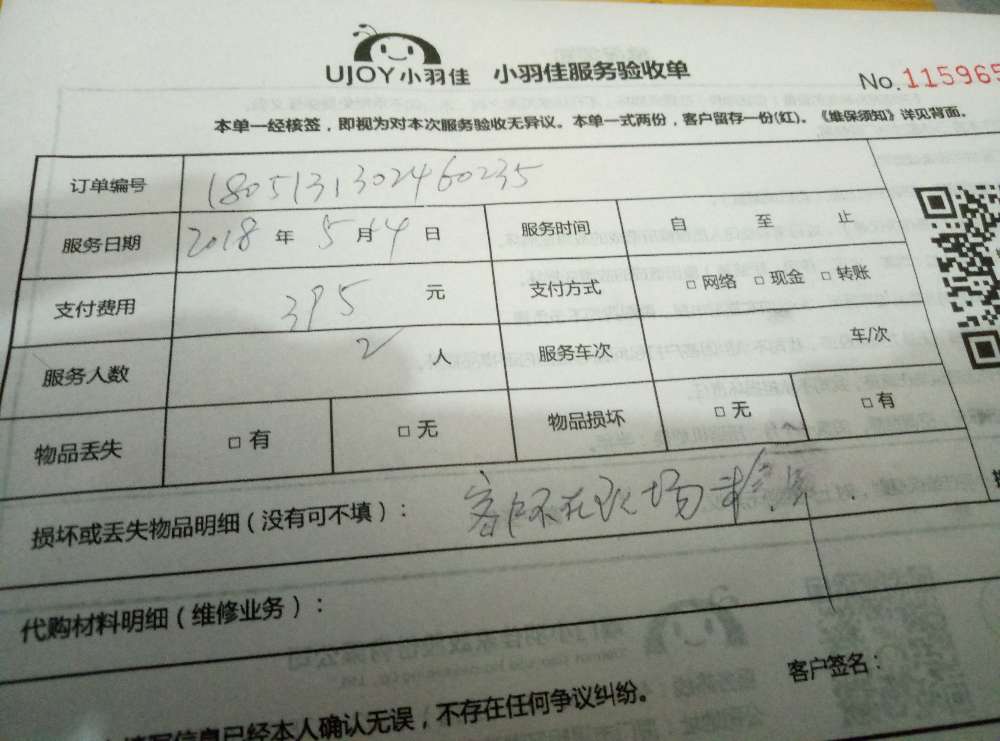 UJOY小羽佳 小羽佳服务验收单
No.115965
本单一经核签，即视为对本次服务验收无异议。本单一式两份，客户留存一份(红)。《维保须知》详见背面。
订单编号 1805131302460235
服务日期 2018 年 5 月 14 日 服务时间 自 至 止
支付费用 395 元 支付方式 □ 网络 □ 现金 □ 转账
服务人数 2 人 服务车次 车/次
物品丢失 □ 有 □ 无 物品损坏 □ 无 □ 有
损坏或丢失物品明细（没有可不填）： 客户不在现场
代购材料明细（维修业务）：
客户签名：
填写信息已经本人确认无误，不存在任何争议纠纷。